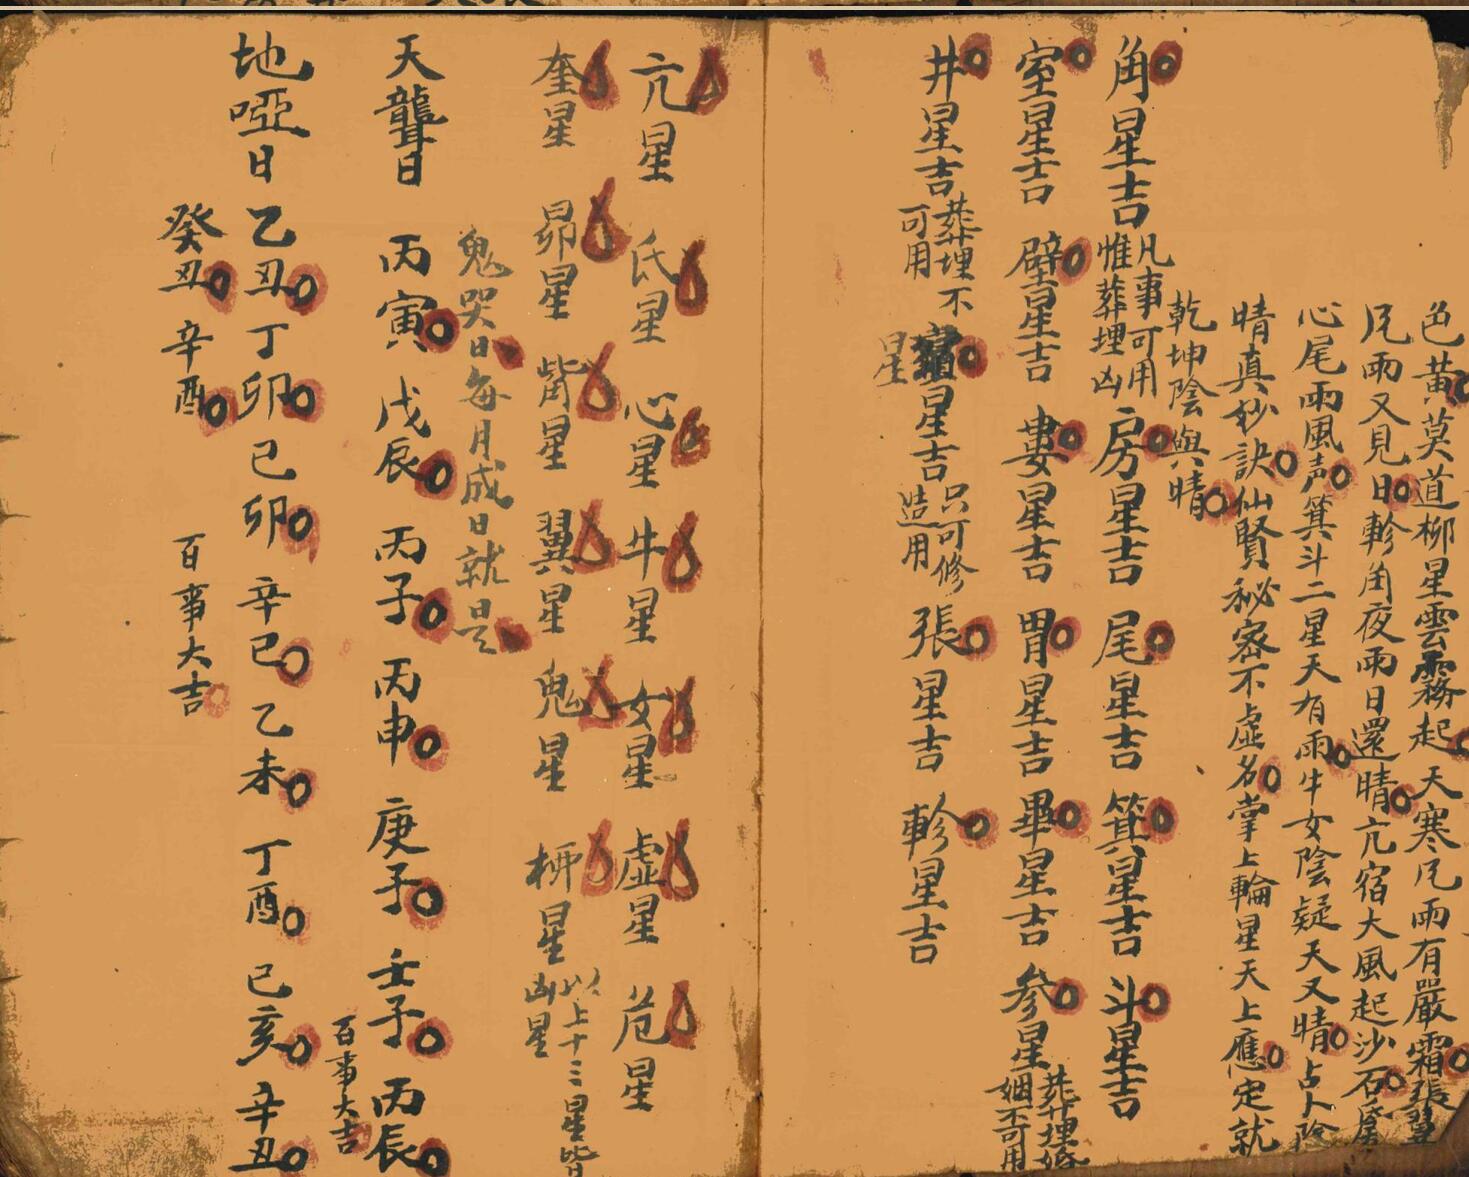 色黄莫道柳星雲霧起天寒风雨有嚴霜張翼
风雨又見日軫角夜雨日還晴亢宿大風起沙石房
心尾雨風声箕斗二星天有雨牛女陰疑天又晴占卜陰
晴真秒訣仙賢秘密不虛名掌上輪星天上應定就
乾坤陰與晴
角星吉凡事可用惟葬埋凶房星吉尾星吉箕星吉斗星吉
室星吉壁星吉婁星吉胃星吉畢星吉参星葬埋婚姻不可用
井星吉葬埋不可用星星吉只可修造用張星吉軫星吉
亢星氐星心星牛星女星虛星危星
奎星昴星觜星翼星鬼星柳星以上十三星皆凶星
鬼哭日每月成日就是
天聾日丙寅戊辰丙子丙申庚子壬子丙辰
百事大吉
地啞日乙丑丁卯己卯辛巳乙未丁酉己亥辛丑
癸丑辛酉百事大吉